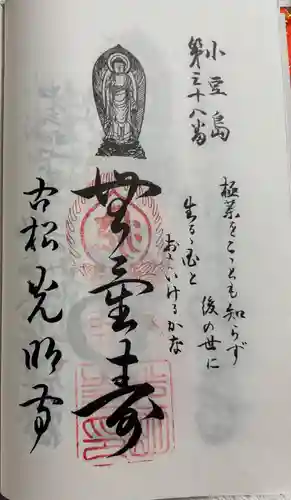 小豆島
第三十八番
極楽をこゝとも知らず
後の世に
生るゝ国と
おもいけるかな
無量寿
古松 光明寺